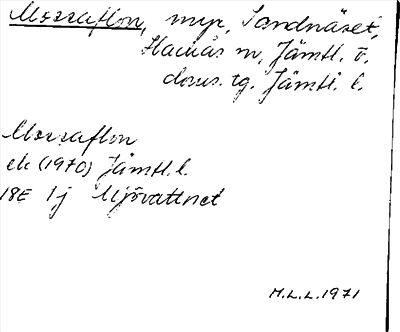 Mossaflon, myr, Sandnäset,
Hackås sn, Jämtl. ö.
doms. tg. Jämtl. l.
Mossaflon
ek (1970) Jämtl. l.
18E 1j Mjövattnet
M.L.L. 1971